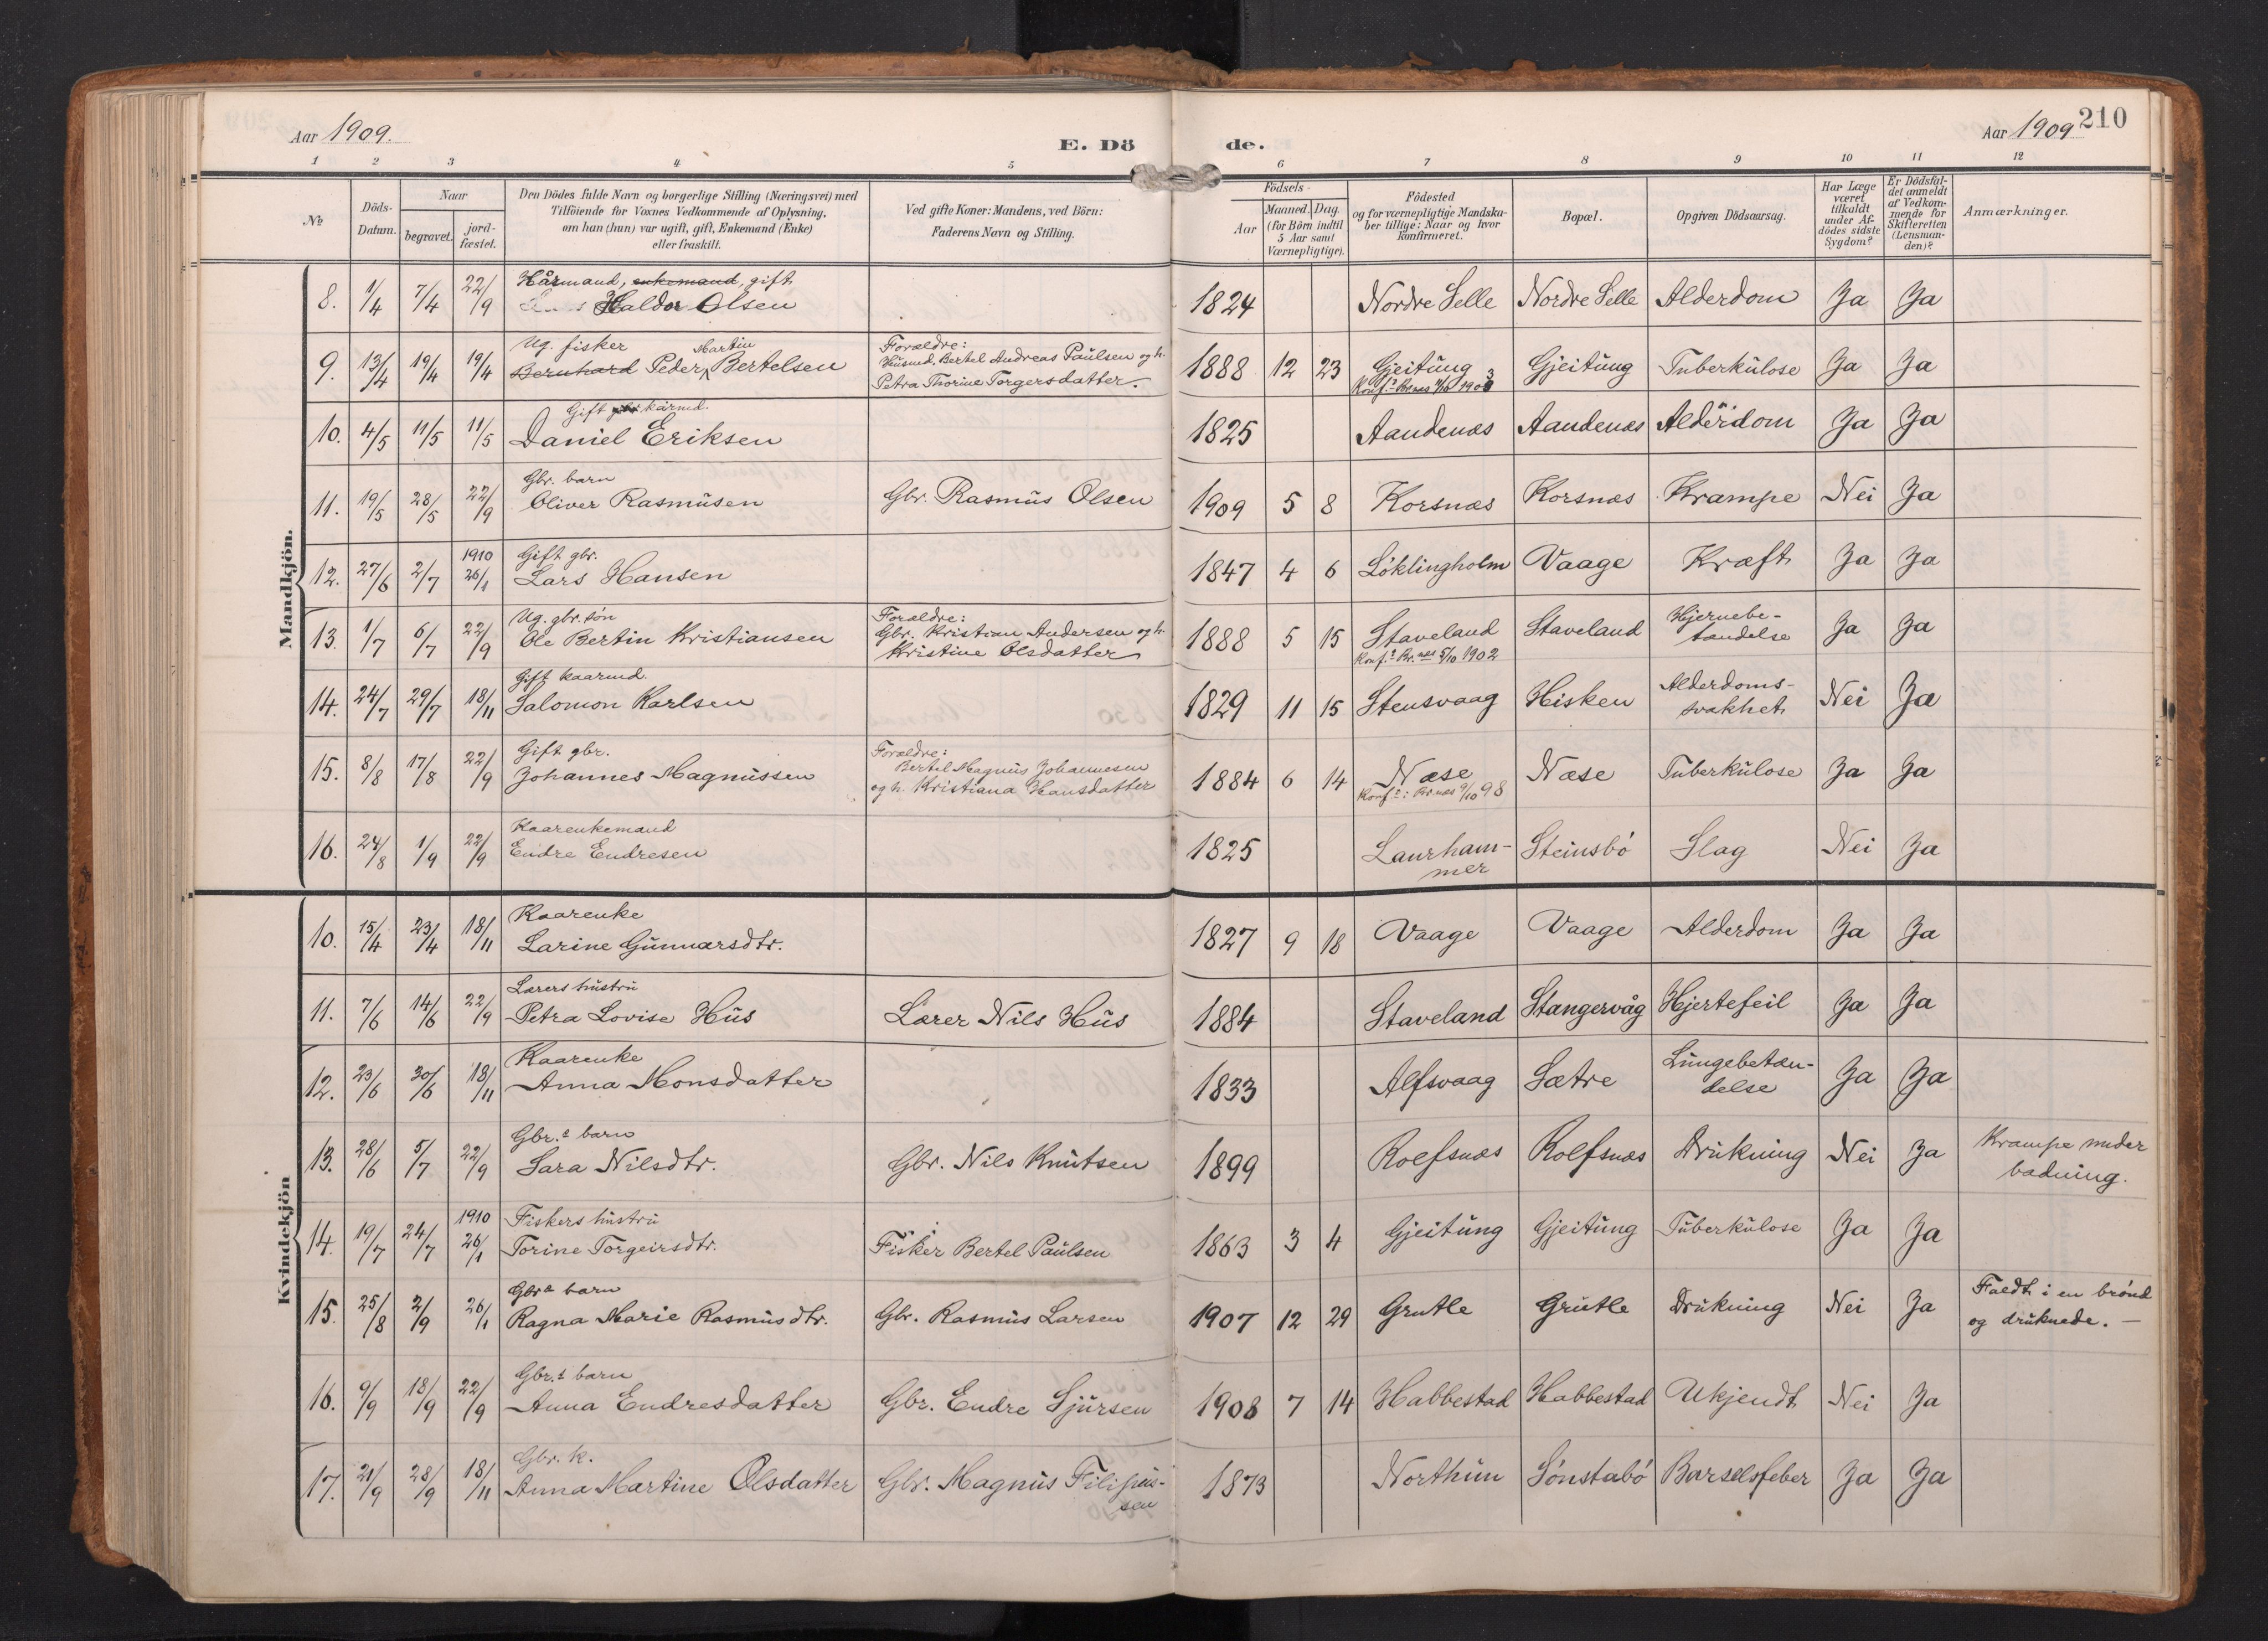 Aar 1909.
E. Dö
de.
Aar 1909
210
1 2 3 4 5 6 7 8 9 10 11 12
No
Döds-
Datum.
Naar
begravet.
jord-
fæstet.
Den Dödes fulde Navn og borgerlige Stilling (Næringsvei) med
Tilföiende for Voxnes Vedkommende af Oplysning,
om han (hun) var ugift, gift, Enkemand (Enke)
eller fraskilt.
Ved gifte Koner: Mandens, ved Börn:
Faderens Navn og Stilling.
Födsels-
Aar
Maaned. Dag.
(for Börn indtil
5 Aar samt
Værnepligtige).
Födested
og for værnepligtige Mandska-
ber tillige: Naar og hvor
Konfirmeret.
Bopæl.
Opgiven Dödsaarsag.
Har Læge
været
tilkaldt
under Af-
dödes sidste
Sygdom?
Er Dödsfal-
det anmeldt
af Vedkom-
mende for
Skifteretten
(Lensman-
den)?
Anmærkninger.
Mandkjön.
Kårmand, enkemand, gift
8. 1/4 7/4 22/9 Haldor Olsen 1824 Nordre Selle Nordre Selle Alderdom Ja Ja
Ug. fisker Martin Forældre:
Husmd. Bertel Andreas Paulsen og h.
9. 13/4 19/4 19/4 Bernhard Peder Bertelsen Petra Thorine Torgersdatter. 1888 12 23 Gjeitung Gjeitung Tuberkulose Ja Ja
Gift kårmd.
10. 4/5 11/5 11/5 Daniel Eriksen 1825 Aandenæs Aandenæs Alderdom Ja Ja
Gbr. barn
11. 19/5 28/5 22/9 Oliver Rasmusen Gbr. Rasmus Olsen 1909 5 8 Korsnæs Korsnæs Krampe Nei Ja
1910 Gift gbr.
12. 27/6 2/7 26/1 Lars Hansen 1847 4 6 Löklingholm Vaage Kræft Ja Ja
Ug. gbr. sön Forældre:
13. 1/7 6/7 22/9 Ole Bertin Kristiansen Gbr. Kristian Andersen og h. 1888 5 15 Staveland Staveland Hjernebe-
Kristine Olsdatter Konf. Br.næs 5/10 1902 tændelse Ja Ja
Gift kaarmd.
14. 24/7 29/7 18/11 Salomon Karlsen 1829 11 15 Stensvaag Hisken Alderdoms-
svakhet Nei Ja
Gift gbr. Forældre:
Bertel Magnus Johannesen
15. 8/8 17/8 22/9 Johannes Magnussen og h. Kristiana Hansdatter 1884 6 14 Næse Næse Tuberkulose Ja Ja
Konf.: Br.næs 9/10 98
Kaarenkemand
16. 24/8 1/9 22/9 Endre Endresen 1825 Laurham-
mer Steinsbö Slag Nei Ja
Kvindekjön
Kaarenke
10. 15/4 23/4 18/11 Larine Gunnarsdtr. 1827 9 18 Vaage Vaage Alderdom Ja Ja
Lærers hustru
11. 7/6 14/6 22/9 Petra Lovise Hus Lærer Nils Hus 1884 Staveland Stangervåg Hjertefeil Ja Ja
Kaarenke
12. 23/6 30/6 18/11 Anna Monsdatter 1833 Alfsvaag Sætre Lungebetæn-
delse Ja Ja
Gbr.s barn
13. 28/6 5/7 22/9 Sara Nilsdtr. Gbr. Nils Knutsen 1899 Rolfsnæs Rolfsnæs Drukning Nei Ja Krampe under
badning.
1910 Fiskers hustru
14. 19/7 24/7 26/1 Torine Torgeirsdtr. Fisker Bertel Paulsen 1863 3 4 Gjeitung Gjeitung Tuberkulose Ja Ja
Gbrs barn
15. 25/8 2/9 26/1 Ragna Marie Rasmusdtr. Gbr. Rasmus Larsen 1907 12 29 Grutle Grutle Drukning Nei Ja Faldt i en brönd
og druknede. —
Gbr.s barn
16. 9/9 18/9 22/9 Anna Endresdatter Gbr. Endre Sjursen 1908 7 14 Habbestad Habbestad Ukjendt Nei Ja
Gbr. k.
17. 21/9 28/9 18/11 Anna Martine Olsdatter Gbr. Magnus Filipus-
sen 1873 Northun Sönstabö Barselsfeber Ja Ja